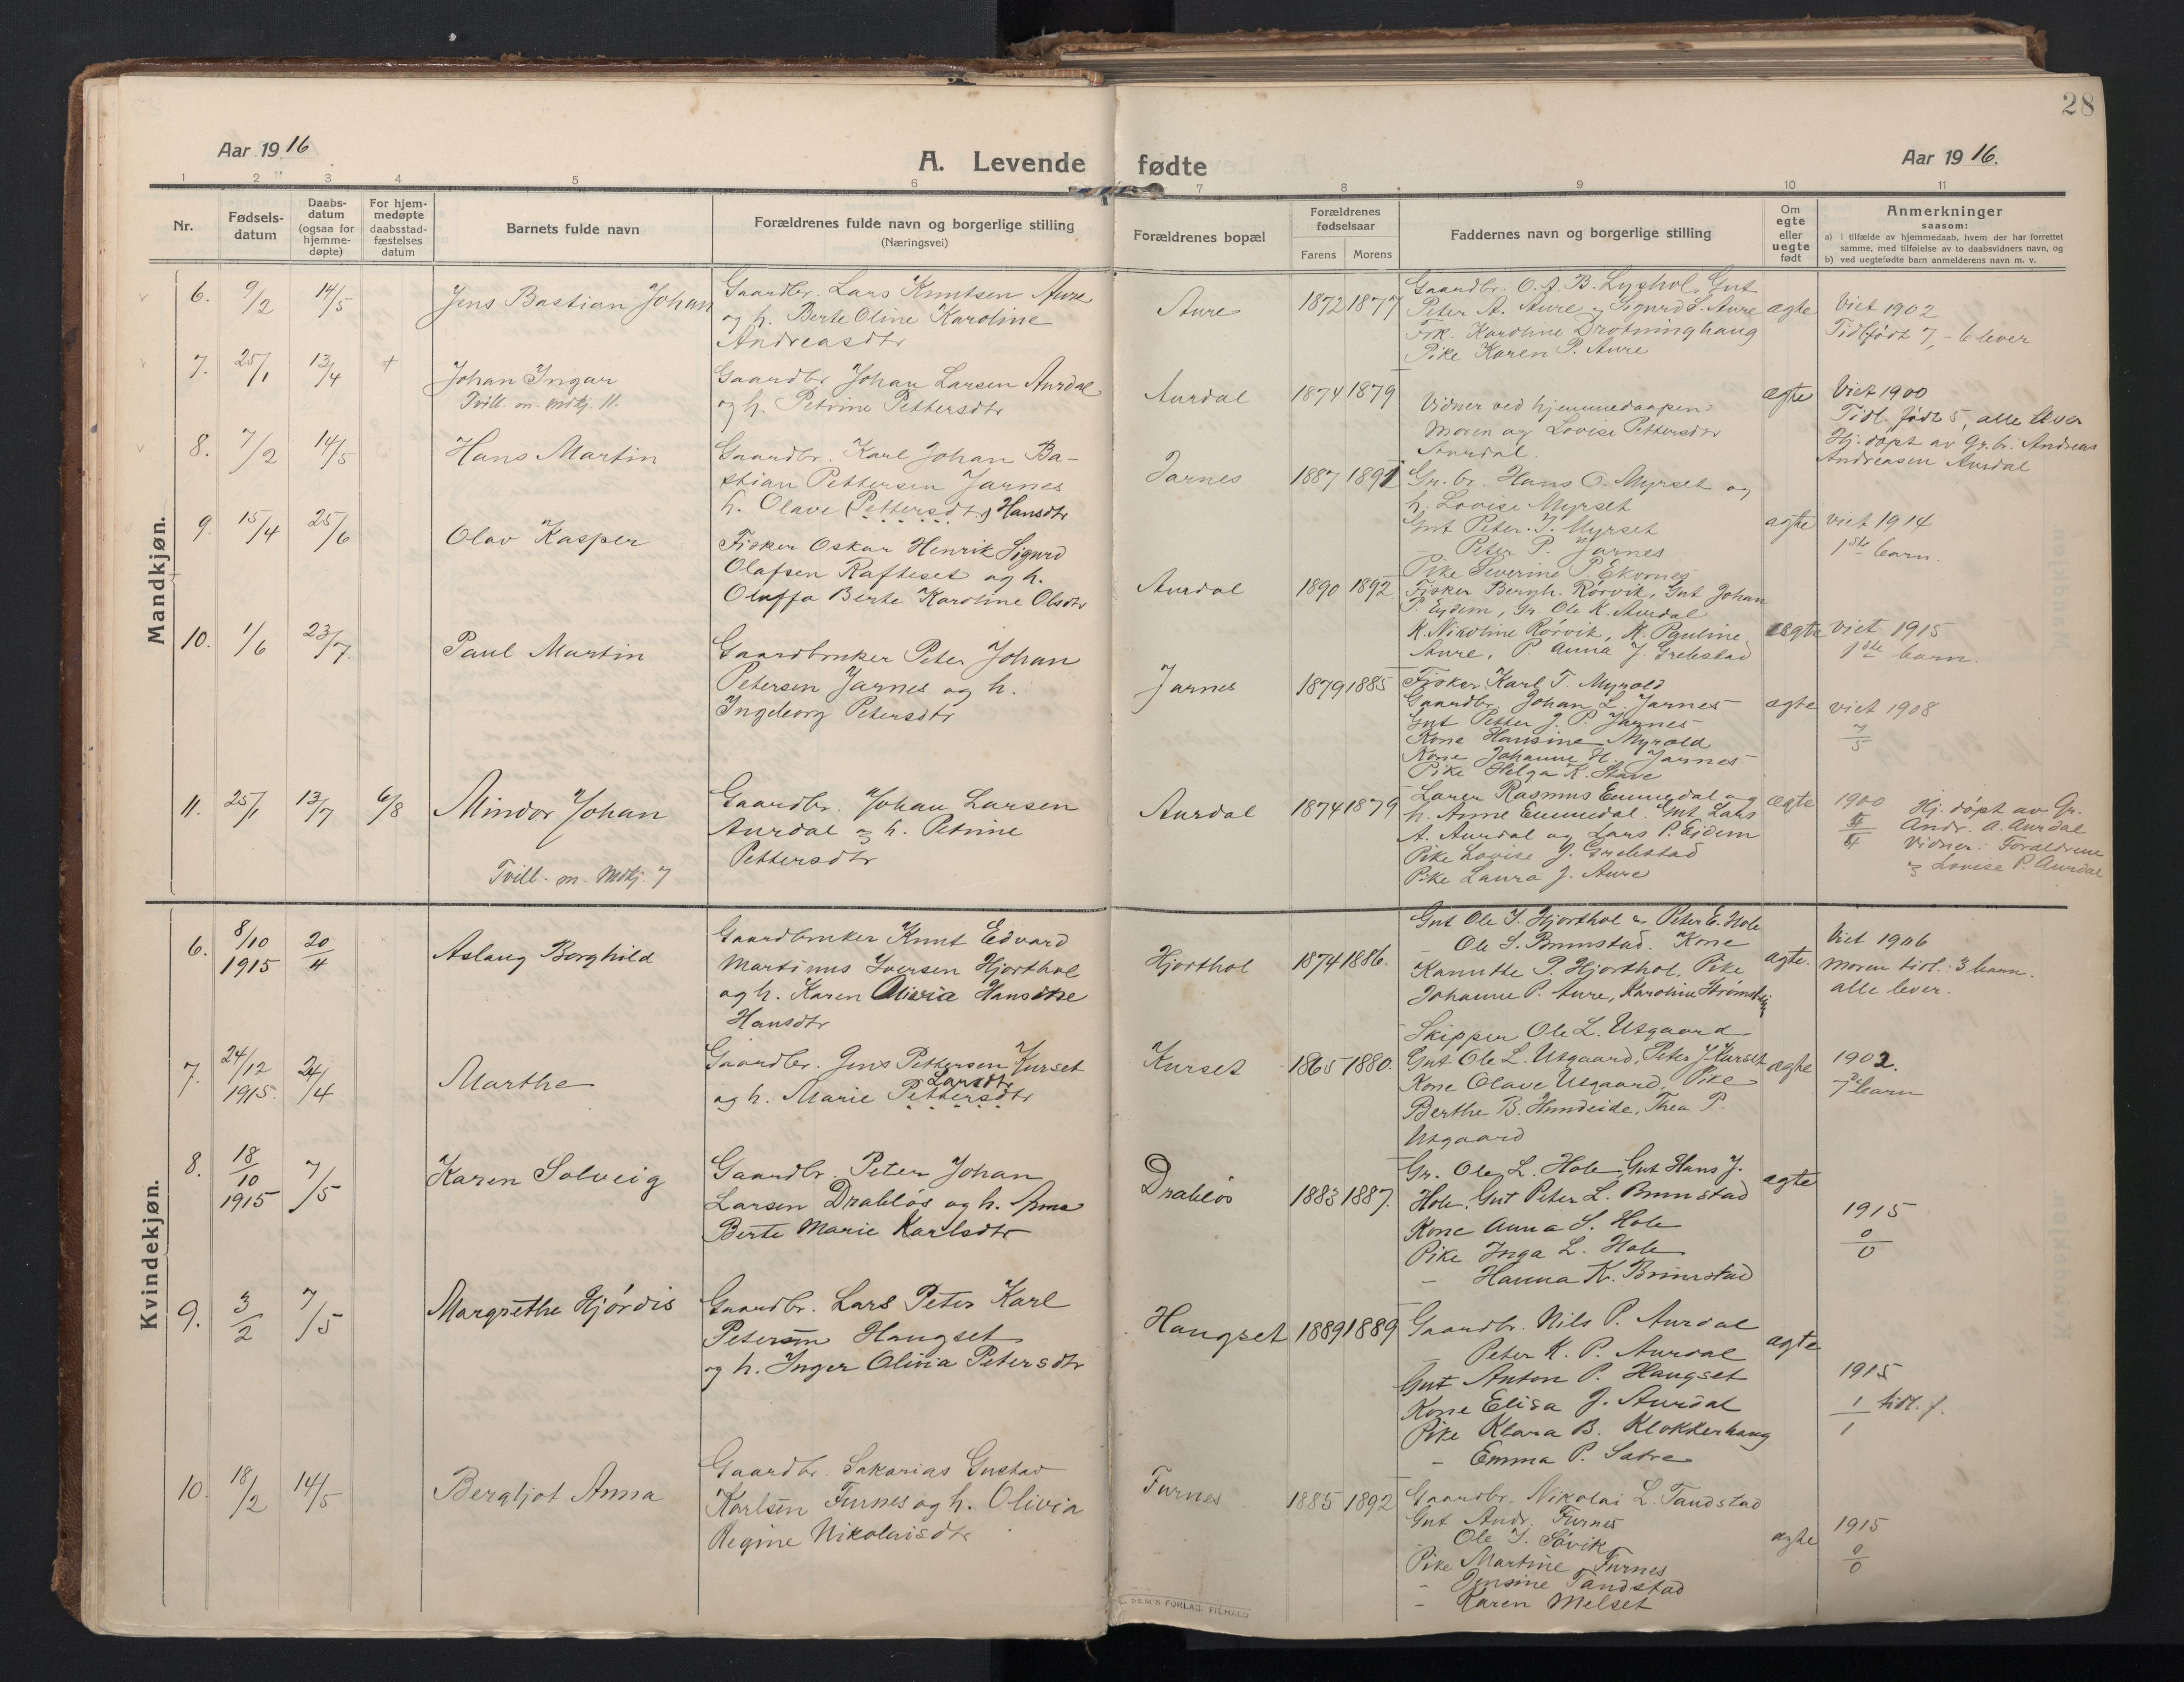 28
Aar 1916
A. Levende fødte
Aar 1916.
1 2 3 4 5 6 7 8 9 10 11
Nr.
Fødsels-
datum
Daabs-
datum
(ogsaa for
hjemme-
døpte)
For hjem-
medøpte
daabsstad-
fæstelses
datum
Barnets fulde navn
Forældrenes fulde navn og borgerlige stilling
(Næringsvei)
Forældrenes bopæl
Forældrenes
fødselsaar
Farens Morens
Faddernes navn og borgerlige stilling
Om
egte
eller
uegte
født
Anmerkninger
saasom:
a) i tilfælde av hjemmedaab, hvem der har forrettet
samme, med tilføielse av to daabsvidners navn, og
b) ved uegtefødte barn anmelderens navn m. v.
Mandkjøn.
6. 9/2 14/5 Jens Bastian Johan
Gaardbr. Lars Knutsen Aure
og h. Berte Oline Karoline
Andreasdtr
Aure 1872 1877
Gaardbr. O. A. B. Lyshol, Gut
Peter A. Aure og Sigurd S. Aure
Frk. Karoline Drotninghaug
Pike Karen P. Aure
ægte
Viet 1902
Tidl. født 7, - 6 lever
7. 25/1 13/4 +
Johan Ingar
Tvill. m. Mdkj. 11.
Gaardbr Johan Larsen Aurdal
og h. Petrine Pettersdtr
Aurdal 1874 1879
Vidner ved hjemmedaapen:
Moren og Lovise Pettersdtr
Aurdal.
ægte
Viet 1900
Tidl. født 5, alle lever
Hj. døpt av Gr. br. Andreas
Andreasen Aurdal
8. 7/2 14/5 Hans Martin
Gaardbr. Karl Johan Ba-
stian Pettersen Jarnes
h. Olave (Pettersdtr) Hansdtr
Jarnes 1887 1891
Gr. br. Hans O. Myrset og
h. Lovise Myrset
Gut Peter J. Myrset
- Peter P. Jarnes
Pike Severine P. Ekornes
ægte
viet 1914
1ste barn.
9. 15/4 25/6 Olav Kasper
Fisker Oskar Henrik Sigurd
Olafsen Rafteset og h.
Oluffa Berte Karoline Olsdtr
Aurdal 1890 1892
Fisker Bernh. Rørvik, Gut Johan
P. Eidem, Gr. Ole K. Aurdal
K. Nikoline Rørvik, K. Pauline
Aure, P. Anna J. Grebstad
ægte
viet 1915
1ste barn.
10. 1/6 23/7 Paul Martin
Gaardbruker Peter Johan
Petersen Jarnes og h.
Ingeborg Petersdtr
Jarnes 1879 1885
Fisker Karl T. Myrold
Gaardbr. Johan L. Jarnes
Gut Petter J. P. Jarnes
Kone Hansine Myrold
Kone Johanne H. Jarnes
Pike Helga K. Stave
ægte
viet 1908
7/5
11. 25/1 13/7 6/8 Mindor Johan
Tvill. m. Mdkj. 7
Gaardbr. Johan Larsen
Aurdal og h. Petrine
Pettersdtr
Aurdal 1874 1879
Lærer Rasmus Emmedal og
h. Anne Emmedal. Gut Lars
A. Aurdal og Lars P. Eidem
Pike Lovise J. Grebstad
Pike Laura J. Aure
ægte
1900
Hj. døpt av Gr.
Andr. A. Aurdal
Vidner: Forældrene
og Lovise P. Aurdal
Kvindekjøn.
6. 8/10 1915 20/4 Aslaug Borghild
Gaardbruker Knut Edvard
Martinus Iversen Hjorthol
og h. Karen Olivia Hansine
Hansdtr
Hjorthol 1874 1886.
Gut Ole I. Hjorthol og Peter E. Hole
- Ole S. Brunstad. Kone
Kanutte P. Hjorthol. Pike
Johanne P. Aure, Karoline
ægte.
Viet 1906
Moren tidl.: 3 barn.
alle lever.
7. 24/12 1915. 24/4 Marthe
Gaardbr. Jens Pettersen Kurset
og h. Marie Pettersdtr
Larsdtr
Kurset 1865 1880.
Skipper Ole L. Utgaard
Gut Ole L. Utgaard, Peter J Kurset
Kone Olave Utgaard, Pike
Berthe B. Hundeide, Thea P.
Utgaard
ægte
1902.
7de barn
8. 18/10 1915 7/5 Karen Solveig
Gaardbr. Peter Johan
Larsen Drabløs og h. Anna
Berte Marie Karlsdtr
Drabløs 1883 1887.
Gr. Ole L. Hole, Gut Hans J.
Hole, Gut Peter L. Brunstad
Kone Anna S. Hole
Pike Inga L. Hole
- Hanna K. Brunstad
ægte
1915
0/0
9. 3/2 7/5 Margrethe Hjørdis
Gaardbr. Lars Peter Karl
Petersen Haugset
og h. Inger Olivia Petersdtr
Haugset 1889 1889
Gaardbr. Nils P. Aurdal
- Peter K. P. Aurdal
Gut Anton P. Haugset
Kone Elisa J. Aurdal
Pike Klara B. Klokkerhaug
- Emma P. Satre
ægte
1915
1/1 tidl. f.
10. 18/2 14/5 Bergljot Anna
Gaardbr. Sakarias Gustav
Karlsen Furnes og h. Olivia
Regine Nikolaisdtr
Furnes 1885 1892
Gaardbr. Nikolai L. Tandstad
Gut Andr. Furnes
Ole I. Søvik
Pike Martine Furnes
- Jensine Tandstad
- Karen Melset
ægte
1915
0/0
SEM'S FORLAG, FR.HALD